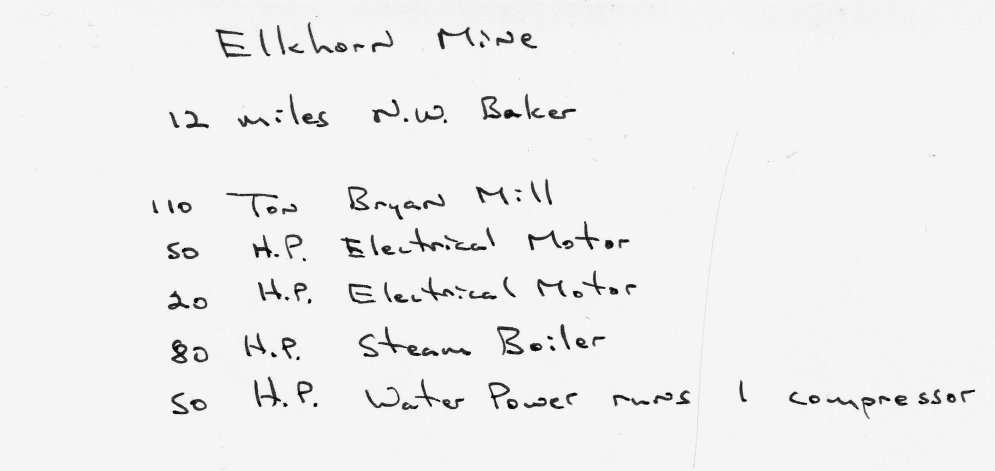 Elkhorn Mine
12 miles N.W. Baker
110 Ton Bryan Mill
50 H.P. Electrical Motor
20 H.P. Electrical Motor
80 H.P. Steam Boiler
50 H.P. Water Power runs 1 compressor